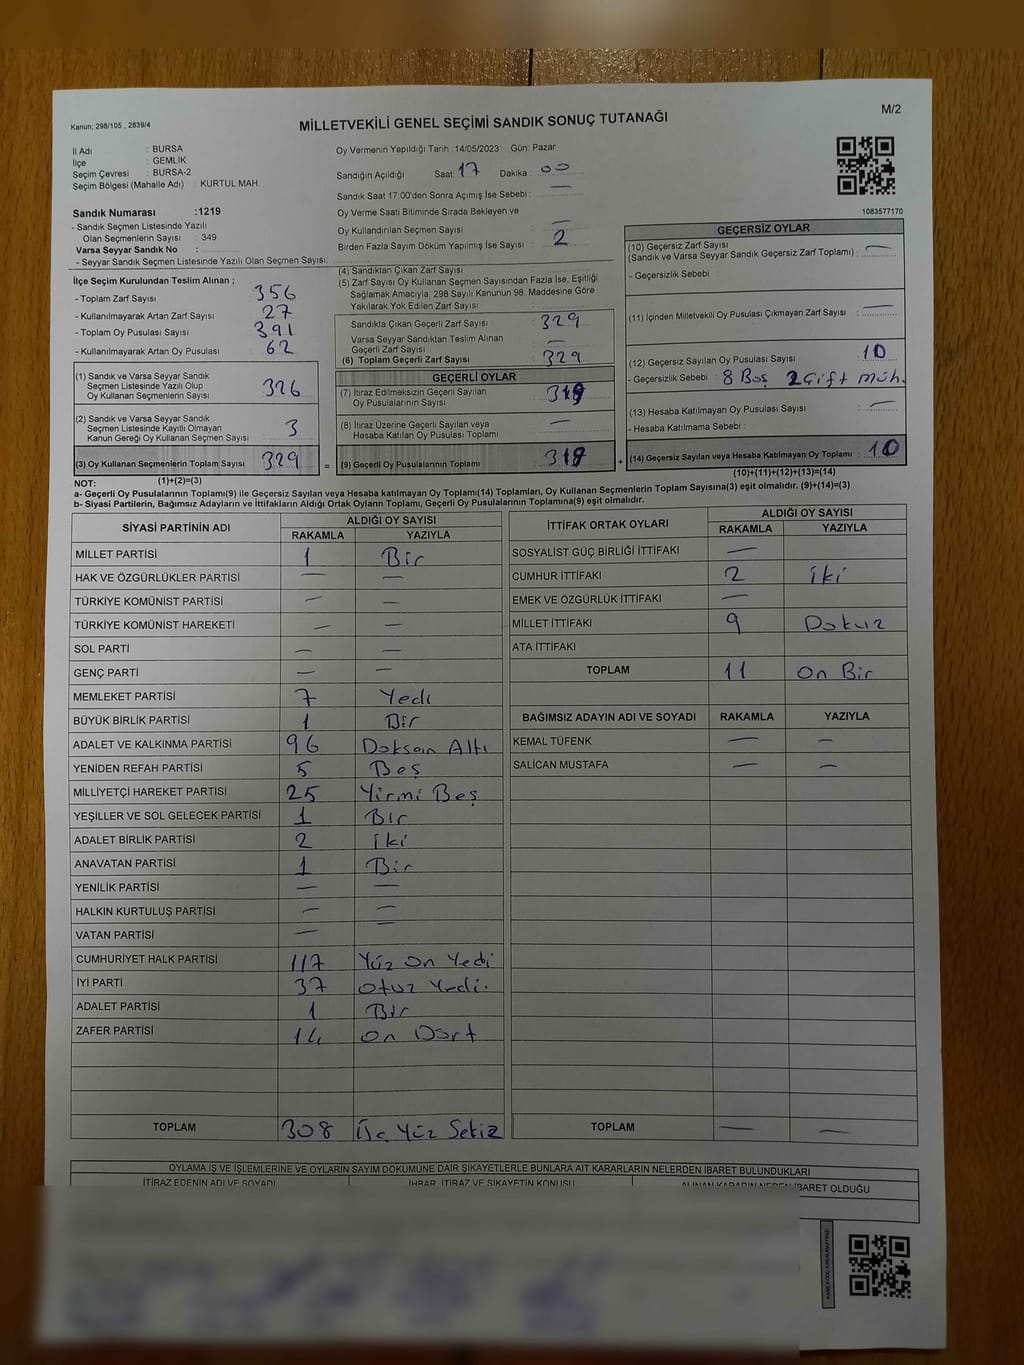 M/2
Kanun: 298/105 , 2839/4
MİLLETVEKİLİ GENEL SEÇİMİ SANDIK SONUÇ TUTANAĞI
İl Adı : BURSA
İlçe : GEMLİK
Seçim Çevresi : BURSA-2
Seçim Bölgesi (Mahalle Adı) : KURTUL MAH
Oy Vermenin Yapıldığı Tarih :14/05/2023 Gün: Pazar
Sandığın Açıldığı Saat: 17 Dakika : 00
Sandık Saat 17:00'den Sonra Açımış İse Sebebi : —
Oy Verme Saati Bitiminde Sırada Bekleyen ve
Oy Kullandırılan Seçmen Sayısı : —
Birden Fazla Sayım Döküm Yapılmış İse Sayısı : 2
1083577170
Sandık Numarası :1219
- Sandık Seçmen Listesinde Yazılı
Olan Seçmenlerin Sayısı : 349
Varsa Seyyar Sandık No :
- Seyyar Sandık Seçmen Listesinde Yazılı Olan Seçmen Sayısı:
İlçe Seçim Kurulundan Teslim Alınan ;
- Toplam Zarf Sayısı : 356
- Kullanılmayarak Artan Zarf Sayısı : 27
- Toplam Oy Pusulası Sayısı : 391
- Kullanılmayarak Artan Oy Pusulası : 62
(1) Sandık ve Varsa Seyyar Sandık
Seçmen Listesinde Yazılı Olup
Oy Kullanan Seçmenlerin Sayısı : 326
(2) Sandık ve Varsa Seyyar Sandık
Seçmen Listesinde Kayıtlı Olmayan
Kanun Gereği Oy Kullanan Seçmen Sayısı : 3
(3) Oy Kullanan Seçmenlerin Toplam Sayısı : 329
(1)+(2)=(3)
(4) Sandıktan Çıkan Zarf Sayısı :
(5) Zarf Sayısı Oy Kullanan Seçmen Sayısından Fazla İse, Eşitliği
Sağlamak Amacıyla; 298 Sayılı Kanunun 98. Maddesine Göre
Yakılarak Yok Edilen Zarf Sayısı :
Sandıkta Çıkan Geçerli Zarf Sayısı : 329
Varsa Seyyar Sandıktan Teslim Alınan
Geçerli Zarf Sayısı : —
(6) Toplam Geçerli Zarf Sayısı : 329
GEÇERLİ OYLAR
(7) İtiraz Edilmeksizin Geçerli Sayılan
Oy Pusulalarının Sayısı : 319
(8) İtiraz Üzerine Geçerli Sayılan veya
Hesaba Katılan Oy Pusulası Toplamı : —
= (9) Geçerli Oy Pusulalarının Toplamı : 319 +
GEÇERSİZ OYLAR
(10) Geçersiz Zarf Sayısı
(Sandık ve Varsa Seyyar Sandık Geçersiz Zarf Toplamı) : —
- Geçersizlik Sebebi :
(11) İçinden Milletvekili Oy Pusulası Çıkmayan Zarf Sayısı : —
(12) Geçersiz Sayılan Oy Pusulası Sayısı : 10
- Geçersizlik Sebebi : 8 Boş 2 Çift müh.
(13) Hesaba Katılmayan Oy Pusulası Sayısı : —
- Hesaba Katılmama Sebebi :
(14) Geçersiz Sayılan veya Hesaba Katılmayan Oy Toplamı : 10
(10)+(11)+(12)+(13)=(14)
NOT:
a- Geçerli Oy Pusulalarının Toplamı(9) ile Geçersiz Sayılan veya Hesaba katılmayan Oy Toplamı(14) Toplamları, Oy Kullanan Seçmenlerin Toplam Sayısına(3) eşit olmalıdır. (9)+(14)=(3)
b- Siyasi Partilerin, Bağımsız Adayların ve İttifakların Aldığı Ortak Oyların Toplamı, Geçerli Oy Pusulalarının Toplamına(9) eşit olmalıdır.
SİYASİ PARTİNİN ADI ALDIĞI OY SAYISI
RAKAMLA YAZIYLA
MİLLET PARTİSİ 1 Bir
HAK VE ÖZGÜRLÜKLER PARTİSİ — —
TÜRKİYE KOMÜNİST PARTİSİ — —
TÜRKİYE KOMÜNİST HAREKETİ — —
SOL PARTİ — —
GENÇ PARTİ — —
MEMLEKET PARTİSİ 7 Yedi
BÜYÜK BİRLİK PARTİSİ 1 Bir
ADALET VE KALKINMA PARTİSİ 96 Doksan Altı
YENİDEN REFAH PARTİSİ 5 Beş
MİLLİYETÇİ HAREKET PARTİSİ 25 Yirmi Beş
YEŞİLLER VE SOL GELECEK PARTİSİ 1 Bir
ADALET BİRLİK PARTİSİ 2 iki
ANAVATAN PARTİSİ 1 Bir
YENİLİK PARTİSİ — —
HALKIN KURTULUŞ PARTİSİ — —
VATAN PARTİSİ — —
CUMHURİYET HALK PARTİSİ 117 Yüz On Yedi
İYİ PARTİ 37 Otuz Yedi.
ADALET PARTİSİ 1 Bir
ZAFER PARTİSİ 14 On Dört
TOPLAM 308 Üç Yüz Sekiz
İTTİFAK ORTAK OYLARI ALDIĞI OY SAYISI
RAKAMLA YAZIYLA
SOSYALİST GÜÇ BİRLİĞİ İTTİFAKI —
CUMHUR İTTİFAKI 2 iki
EMEK VE ÖZGÜRLÜK İTTİFAKI —
MİLLET İTTİFAKI 9 Dokuz
ATA İTTİFAKI
TOPLAM 11 On Bir
BAĞIMSIZ ADAYIN ADI VE SOYADI RAKAMLA YAZIYLA
KEMAL TÜFENK — —
SALİCAN MUSTAFA — —
TOPLAM — —
OYLAMA İŞ VE İŞLEMLERİNE VE OYLARIN SAYIM DÖKÜMÜNE DAİR ŞİKAYETLERLE BUNLARA AİT KARARLARIN NELERDEN İBARET BULUNDUKLARI
İTİRAZ EDENİN ADI VE SOYADI İHBAR, İTİRAZ VE ŞİKAYETİN KONUSU ALINAN KARARIN NEDEN İBARET OLDUĞU